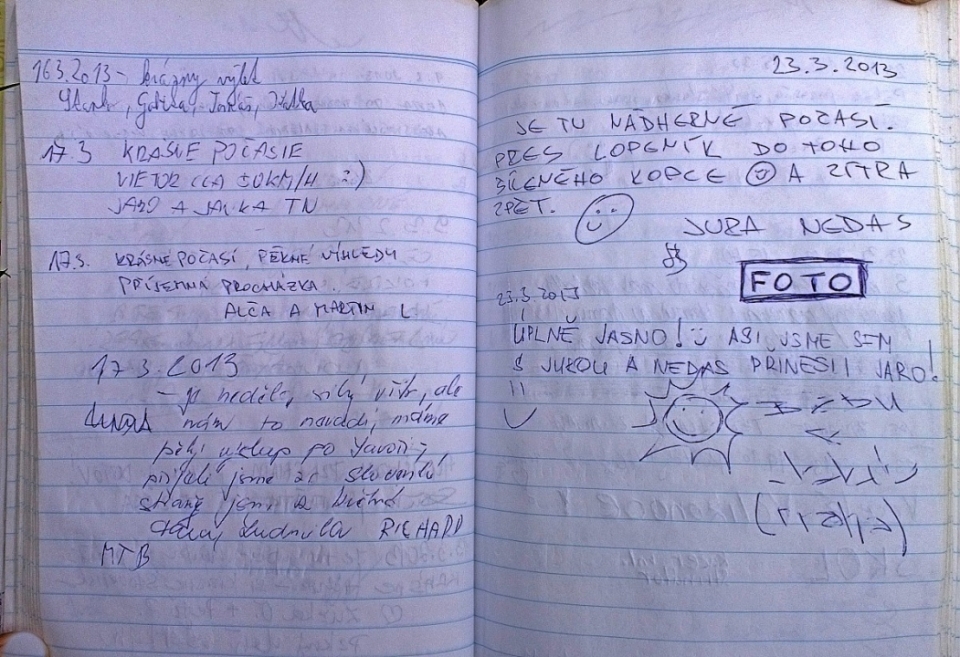 16.3.2013 - krásny výlet
17.3 KRÁSNE POČASIE
VIETOR CCA 50KM/H :)
JARO A JANKA TN
17.3. KRÁSNÉ POČASÍ, PĚKNÉ VÝHLEDY
PŘÍJEMNÁ PROCHÁZKA.
ALČA A MARTIN
17.3.2013
- je neděle, silný vítr, ale
nám to nevadí, máme
pěkný výstup po
přijeli jsme ze Slovenské
strany jsem z
Ludmila RICHARD
MTB
23.3.2013
JE TU NÁDHERNÉ POČASÍ.
PŘES LOPENÍK DO TOHO
ŠÍLENÉHO KOPCE A ZÍTRA
ZPĚT.
JURA NEDAS
FOTO
23.3.2013
ÚPLNĚ JASNO! ASI JSME SEM
S JUROU A NEDAS PŘINESLI JARO!